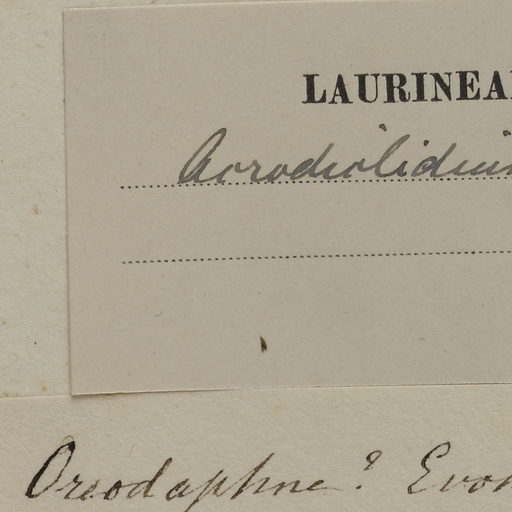 LAURINEA
Acrodiclidiu
Oreodaphne? Evon